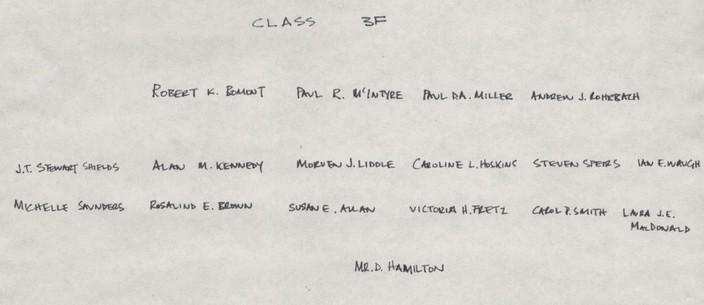 CLASS 3F
ROBERT K. BOMONT PAUL R. McINTYRE PAUL D.A. MILLER ANDREW J. ROHRBACH
J.T. STEWART SHIELDS ALAN M. KENNEDY MORVEN J. LIDDLE CAROLINE L. HOSKINS STEVEN SPEIRS IAN E. WAUGH
MICHELLE SAUNDERS ROSALIND E. BROWN SUSAN E. ALLAN VICTORIA H. PRETZ CAROL P. SMITH LAURA J.E.
MACDONALD
MR. D. HAMILTON